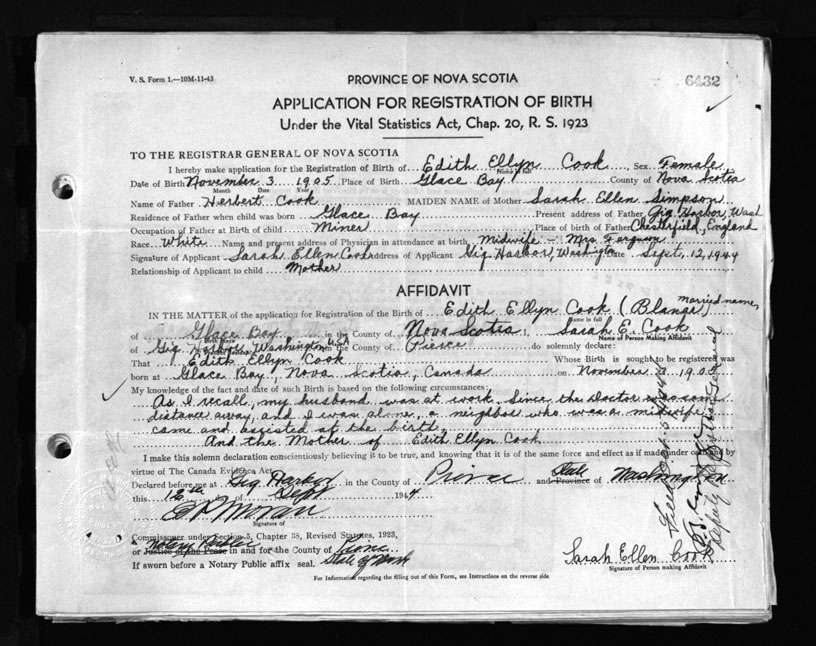 V. S. Form 1.—10M-11-43
PROVINCE OF NOVA SCOTIA
6432
APPLICATION FOR REGISTRATION OF BIRTH
Under the Vital Statistics Act, Chap. 20, R. S. 1923
TO THE REGISTRAR GENERAL OF NOVA SCOTIA
I hereby make application for the Registration of Birth of Edith Ellyn Cook Sex Female
Name in full
Date of Birth November 3 1905 Place of Birth Glace Bay County of Nova Scotia
Month Date Year
Name of Father Herbert Cook MAIDEN NAME of Mother Sarah Ellen Simpson
Residence of Father when child was born Glace Bay Present address of Father Gig Harbor, Wash
Occupation of Father at Birth of child Miner Place of birth of Father Chesterfield, England
Race White Name and present address of Physician in attendance at birth Midwife - Mrs. Ferguson
Signature of Applicant Sarah Ellen Cook Address of Applicant Gig Harbor, Washington Date Sept. 12, 1944
Relationship of Applicant to child Mother
AFFIDAVIT
IN THE MATTER of the application for Registration of the Birth of Edith Ellyn Cook (Blange) married name
Name in full
of Glace Bay in the County of Nova Scotia I, Sarah E. Cook
Name of Person Making Affidavit
of Gig Harbor, Washington U.S.A. in the County of Pierce do solemnly declare:
That Edith Ellyn Cook Whose Birth is sought to be registered was
born at Glace Bay, Nova Scotia, Canada on November 3 1905
My knowledge of the fact and date of such Birth is based on the following circumstances:
As I recall, my husband was at work. Since the Doctor was some
distance away, and I was alone, a neighbor who was a midwife
came and assisted at the birth.
And the Mother of Edith Ellyn Cook
I make this solemn declaration conscientiously believing it to be true, and knowing that it is of the same force and effect as if made under oath and by
virtue of The Canada Evidence Act.
Declared before me at Gig Harbor in the County of Pierce and Province State of Washington
this 12th day of Sept 1944
Signature of
Commissioner under Section 5, Chapter 38, Revised Statutes, 1923,
or Justice of the Peace Notary Public in and for the County of Pierce
If sworn before a Notary Public affix seal. State of Wash
Sarah Ellen Cook
Signature of Person making Affidavit
For Information regarding the filling out of this Form, see Instructions on the reverse side
Deputy Registrar General